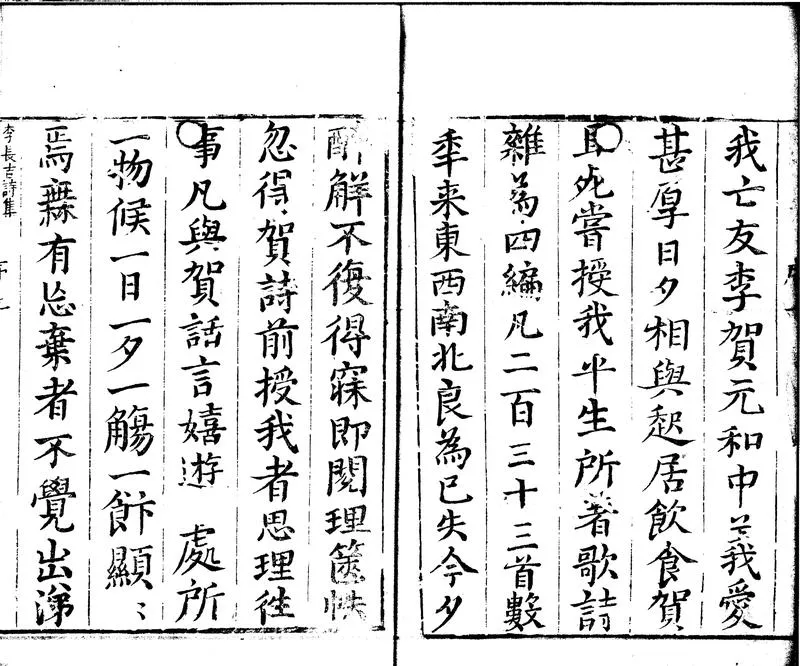 我亡友李賀元和中義愛
甚厚日夕相與起居飲食賀
且死嘗授我平生所著歌詩
雜爲四編凡二百三十三首數
年来東西南北良為已失今夕
醉解不復得寐即閱理篋帙
忽得賀詩前授我者思理往
事凡與賀話言嬉遊處所
一物候一日一夕一觴一飰顯〻
焉無有忘棄者不覺出涕
李長吉詩集